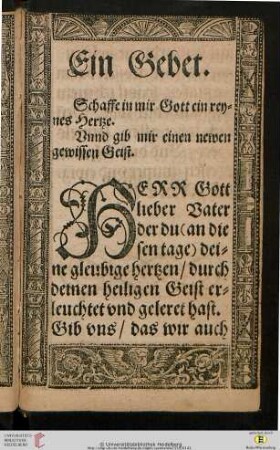 Ein Gebet.
Schaffe in mir Gott ein rey-
nes Hertze.
Vnnd gib mir einen newen
gewissen Geist.
HERR Gott
lieber Vater
der du (an die
sen tage) dei-
ne gleubige hertzen / durch
deinen heiligen Geist er-
leuchtet vnd geleret hast.
Gib vns / das wir auch
© Universitätsbibliothek Heidelberg